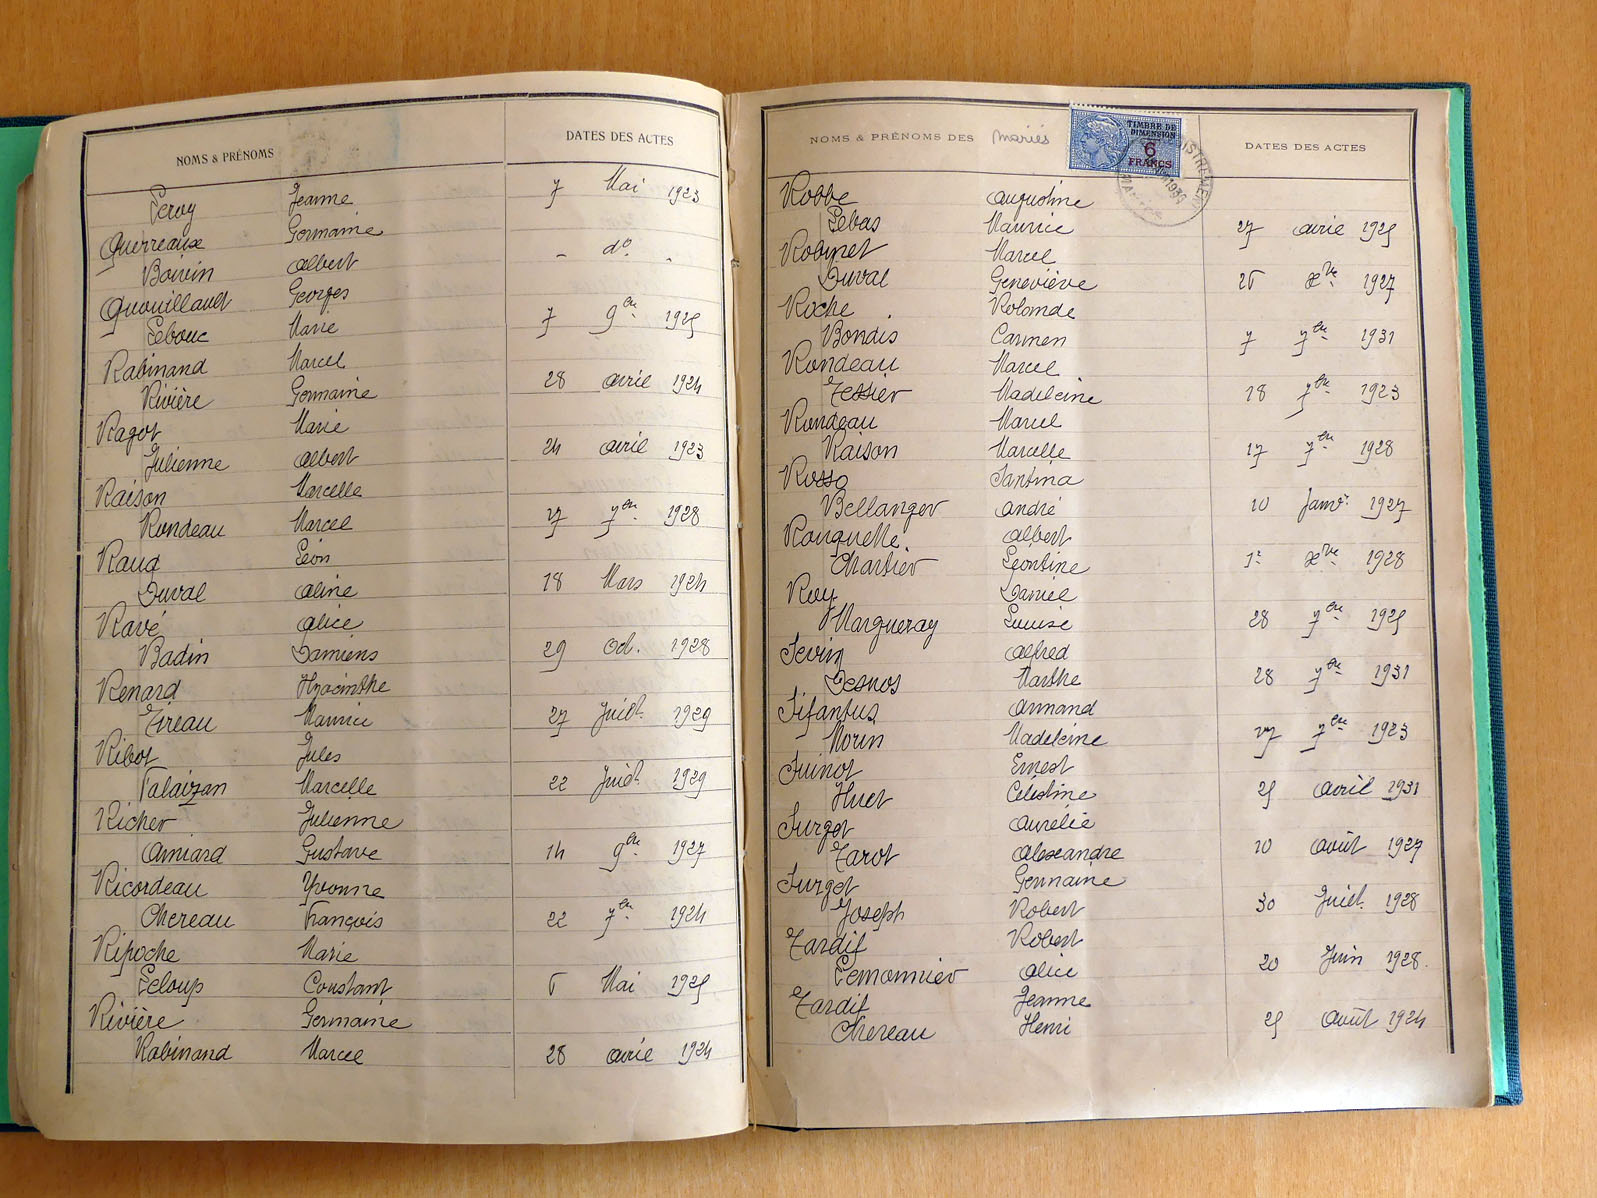 NOMS & PRÉNOMS DATES DES ACTES
Leroy Jeanne 7 Mai 1923
Querreaux Germaine
Boivin Albert - do -
Quouillault Georges
Lebouc Marie 7 9bre 1925
Rabinand Marcel
Rivière Germaine 28 avril 1924
Ragot Marie
Julienne Albert 24 avril 1923
Raison Marcelle
Rondeau Marcel 17 7bre 1928
Raud Léon
Duval Aline 18 Mars 1924
Ravé Alice
Badin Damiens 29 Oct. 1928
Renard Hyacinthe
Tireau Maurice 27 Juilt. 1929
Ribot Jules
Talaizan Marcelle 22 Juilt. 1929
Richer Julienne
Amiard Gustave 14 9bre 1927
Ricordeau Yvonne
Chereau François 22 7bre 1924
Ripoche Marie
Leloup Constant 6 Mai 1925
Rivière Germaine
Rabinand Marcel 28 avril 1924
NOMS & PRÉNOMS DES mariés DATES DES ACTES
TIMBRE DE DIMENSION
6
FRANCS
Robbe Augustine
Lebas Maurice 27 avril 1925
Robinet Marcel
Duval Geneviève 26 Xbre 1927
Roche Rolande
Bondis Carmen 7 7bre 1931
Rondeau Marcel
Tessier Madeleine 18 7bre 1923
Rondeau Marcel
Raison Marcelle 17 7bre 1928
Rosso Santina
Bellanger André 10 Janvr. 1927
Rouquette Albert
Chartier Léontine 1er Xbre 1928
Roy Daniel
Margueray Louise 28 7bre 1925
Sevin Alfred
Desnos Marthe 28 7bre 1931
Sifantus Armand
Morin Madeleine 17 7bre 1923
Suinot Ernest
Huet Célestine 25 avril 1931
Surget Aurélie
Tarot Alexandre 10 août 1927
Surget Germaine
Joseph Robert 30 Juilt. 1928
Tardif Robert
Lemonnier Alice 20 Juin 1928
Tardif Jeanne
Chereau Henri 25 août 1924